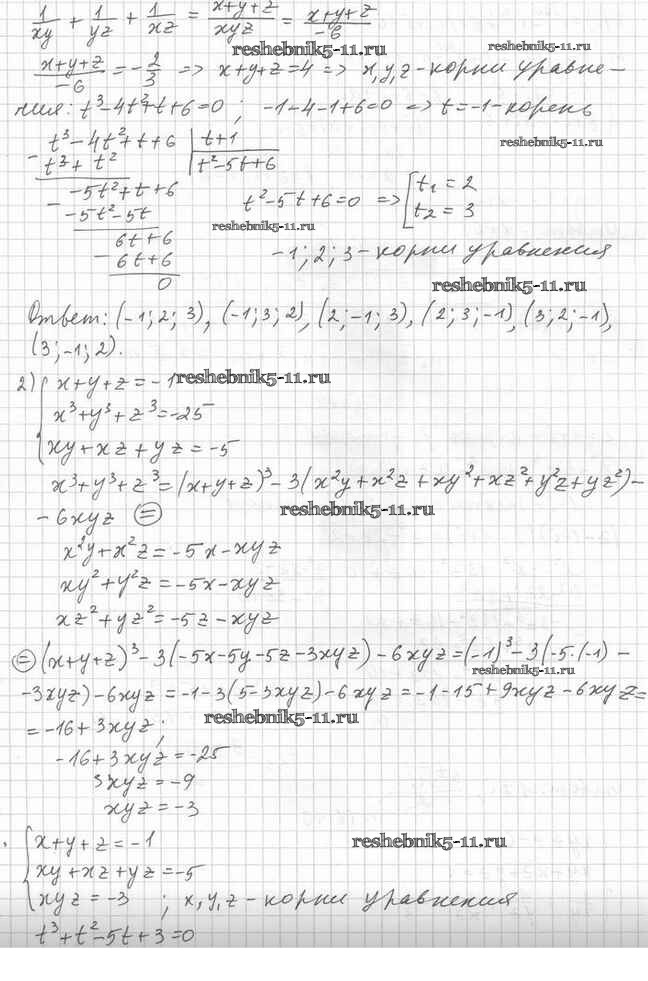 1/xy + 1/yz + 1/xz = x+y+z/xyz = x+y+z/-6
reshebnik5-11.ru reshebnik5-11.ru
x+y+z/-6 = -2/3 => x+y+z=4 => x,y,z - корни уравне-
ния: t³-4t²+t+6=0; -1-4-1+6=0 => t=-1 - корень
reshebnik5-11.ru
t³-4t²+t+6 | t+1
- t³+t² | t²-5t+6
- -5t²+t+6
-5t²-5t
t²-5t+6=0 => [ t₁=2
t₂=3
reshebnik5-11.ru
6t+6
- 6t+6
0
-1; 2; 3 - корни уравнения
reshebnik5-11.ru
Ответ: (-1; 2; 3), (-1; 3; 2), (2; -1; 3), (2; 3; -1), (3; 2; -1),
(3; -1; 2).
2) { x+y+z=-1
reshebnik5-11.ru
x³+y³+z³=-25
xy+xz+yz=-5
x³+y³+z³=(x+y+z)³-3(x²y+x²z+xy²+xz²+y²z+yz²)-
-6xyz (=)
reshebnik5-11.ru
x²y+x²z=-5x-xyz
xy²+y²z=-5x-xyz
xz²+yz²=-5z-xyz
(=) (x+y+z)³-3(-5x-5y-5z-3xyz)-6xyz=(-1)³-3(-5·(-1)-
reshebnik5-11.ru
-3xyz)-6xyz=-1-3(5-3xyz)-6xyz=-1-15+9xyz-6xyz=
=-16+3xyz;
reshebnik5-11.ru
-16+3xyz=-25
3xyz=-9
xyz=-3
{ x+y+z=-1
reshebnik5-11.ru
xy+xz+yz=-5
xyz=-3 ; x,y,z - корни уравнения
t³+t²-5t+3=0